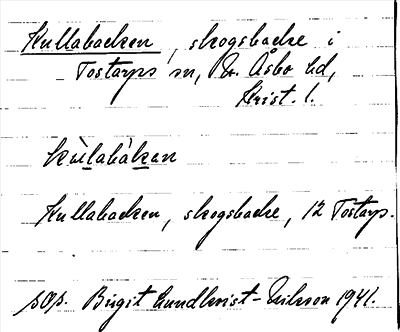 Kullabacken, skogsbacke i
Tostarps sn, N. Åsbo hd,
Krist. l.
kùlabàkan
Kullabacken, skogsbacke, 12 Tostarp.
sOp. Birgit Lundkvist-Eriksson 1941.